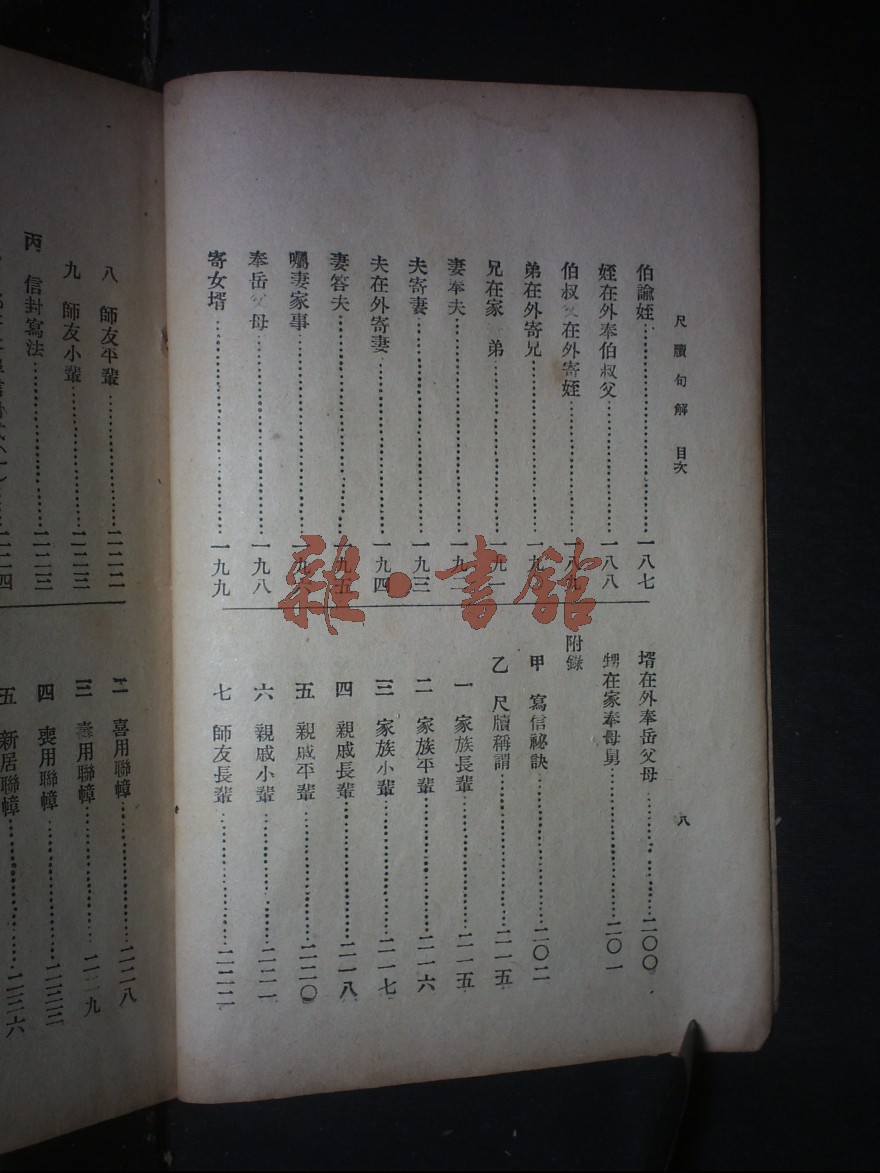 尺牘句解 目次
八
伯諭姪 一八七
姪在外奉伯叔父 一八八
伯叔父在外寄姪 一八九
弟在外寄兄 一九
兄在家 弟 一九
妻奉夫 一九
夫寄妻 一九三
夫在外寄妻 一九四
妻答夫 一九五
囑妻家事 一九
奉岳父母 一九八
寄女壻 一九九
壻在外奉岳父母 二〇〇
甥在家奉母舅 二〇一
附錄
甲 寫信祕訣 二〇二
乙 尺牘稱謂 二一五
一 家族長輩 二一五
二 家族平輩 二一六
三 家族小輩 二一七
四 親戚長輩 二一八
五 親戚平輩 二二〇
六 親戚小輩 二二一
七 師友長輩 二二二
八 師友平輩 二二二
九 師友小輩 二二三
丙 信封寫法 二二三
二二四
二 喜用聯幛 二二八
三 壽用聯幛 二二九
四 喪用聯幛 二三三
五 新居聯幛 二三六
雜·書館